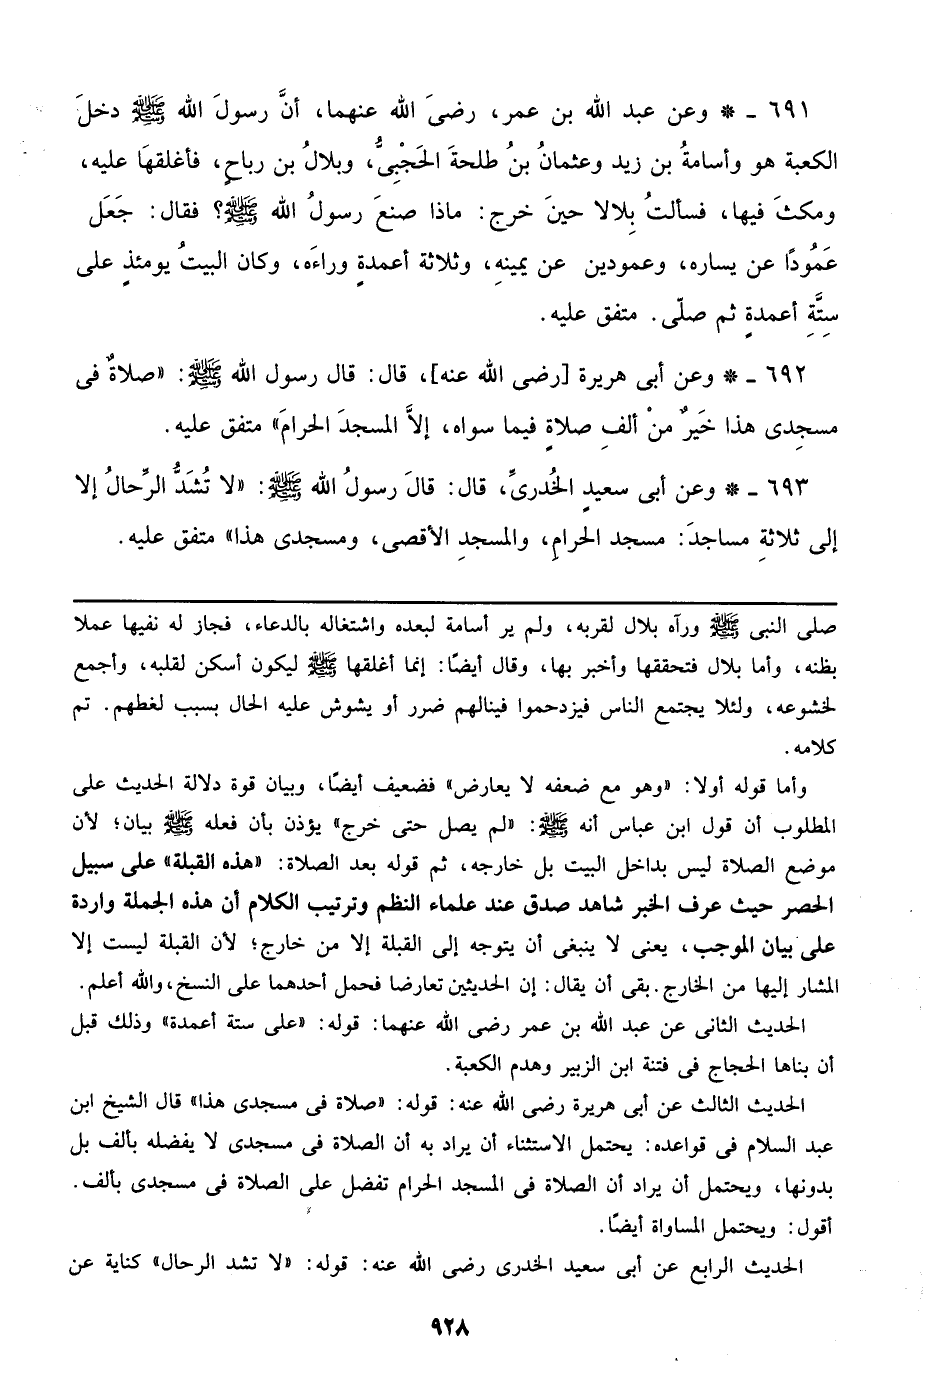 ٦٩١ ـ * وعن عبد الله بن عمر، رضىَ الله عنهما، أنَّ رسولَ الله ﷺ دخلَ
الكعبة هو وأسامةُ بن زيد وعثمانُ بنُ طلحةَ الحَجْبِىُّ، وبلالُ بن رباحٍ، فأغلقهَا عليه،
ومكثَ فيها، فسألتُ بِلالا حينَ خرج: ماذا صنعَ رسولُ الله ﷺ؟ فقال: جَعَل
عَمُودًا عن يساره، وعمودين عن يمينهِ، وثلاثة أعمدةٍ وراءَه، وكان البيتُ يومئذٍ على
ستَّةِ أعمدةٍ ثم صلّى. متفق عليه.
٦٩٢ ـ * وعن أبى هريرة [رضى الله عنه]، قال: قال رسول الله ﷺ: «صلاةٌ فى
مسجدِى هذا خَيرٌ منْ ألفِ صلاةٍ فيما سواه، إلاَّ المسجدَ الحرامَ» متفق عليه.
٦٩٣ ـ * وعن أبى سعيدٍ الخُدرىِّ، قال: قالَ رسولُ الله ﷺ: «لا تُشَدُّ الرِّحالُ إلا
إلى ثلاثةِ مساجدَ: مسجد الحرامِ، والمسجدِ الأقصى، ومسجدى هذا» متفق عليه.
صلى النبى ﷺ ورآه بلال لقربه، ولم ير أسامة لبعده واشتغاله بالدعاء، فجاز له نفيها عملا
بظنه، وأما بلال فتحققها وأخبر بها، وقال أيضًا: إنما أغلقها ﷺ ليكون أسكن لقلبه، وأجمع
لخشوعه، ولئلا يجتمع الناس فيزدحموا فينالهم ضرر أو يشوش عليه الحال بسبب لغطهم. تم
كلامه.
وأما قوله أولا: «وهو مع ضعفه لا يعارض» فضعيف أيضًا، وبيان قوة دلالة الحديث على
المطلوب أن قول ابن عباس أنه ﷺ: «لم يصل حتى خرج» يؤذن بأن فعله ﷺ بيان؛ لأن
موضع الصلاة ليس بداخل البيت بل خارجه، ثم قوله بعد الصلاة: «هذه القبلة» على سبيل
الحصر حيث عرف الخبر شاهد صدق عند علماء النظم وترتيب الكلام أن هذه الجملة واردة
على بيان الموجب، يعنى لا ينبغى أن يتوجه إلى القبلة إلا من خارج؛ لأن القبلة ليست إلا
المشار إليها من الخارج. بقى أن يقال: إن الحديثين تعارضا فحمل أحدهما على النسخ، والله أعلم.
الحديث الثانى عن عبد الله بن عمر رضى الله عنهما: قوله: «على ستة أعمدة» وذلك قبل
أن بناها الحجاج فى فتنة ابن الزبير وهدم الكعبة.
الحديث الثالث عن أبى هريرة رضى الله عنه: قوله: «صلاة فى مسجدى هذا» قال الشيخ ابن
عبد السلام فى قواعده: يحتمل الاستثناء أن يراد به أن الصلاة فى مسجدى لا يفضله بألف بل
بدونها، ويحتمل أن يراد أن الصلاة فى المسجد الحرام تفضل على الصلاة فى مسجدى بألف.
أقول: ويحتمل المساواة أيضًا.
الحديث الرابع عن أبى سعيد الخدرى رضى الله عنه: قوله: «لا تشد الرحال» كناية عن
٩٢٨